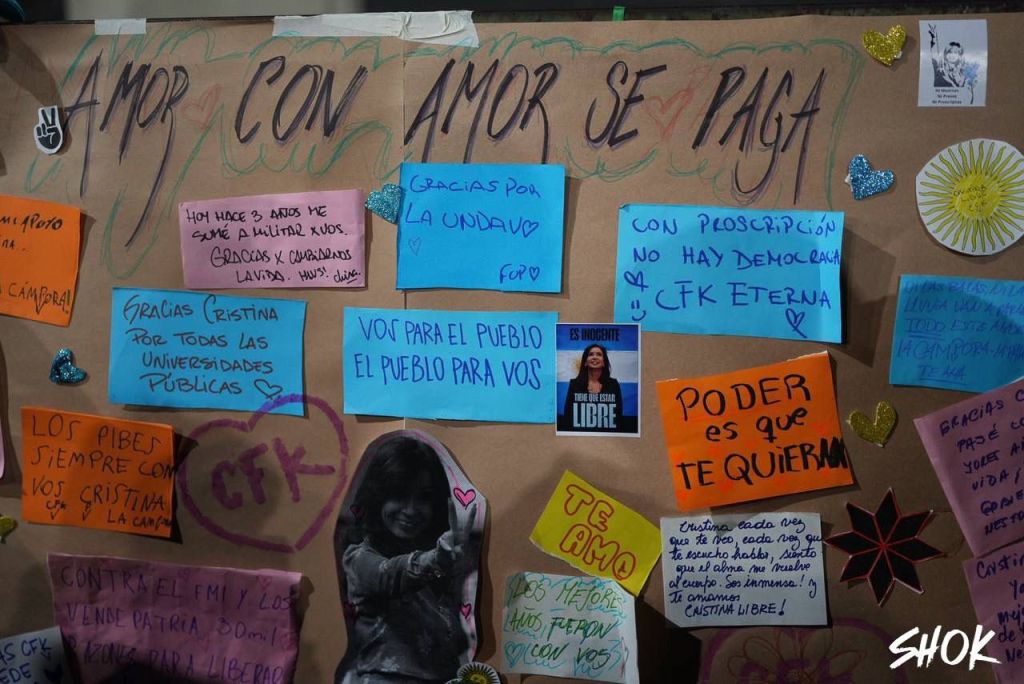 AMOR CON AMOR SE PAGA
MI APOYO
CÁMPORA!
HOY HACE 3 AÑOS ME
SUMÉ A MILITAR X VOS.
GRACIAS X CAMBIARNOS
LA VIDA.
GRACIAS POR
LA UNDAV
CON PROSCRIPCIÓN
NO HAY DEMOCRACIA
CFK ETERNA
GRACIAS CRISTINA
POR TODAS LAS
UNIVERSIDADES
PÚBLICAS
VOS PARA EL PUEBLO
EL PUEBLO PARA VOS
ES INOCENTE
TIENE QUE ESTAR
LIBRE
TODO ESTE
LA CAMPORA
TE MA
LOS PIBES
SIEMPRE CON
VOS CRISTINA
CFK LA CAMPORA
CFK
PODER
es que
TE QUIERAN
GRACIAS
TE
AMO
Cristina cada vez
que te veo, cada vez que
te escucho hablar, siento
que el alma me vuelve
al cuerpo. Sos inmensa! y
te amamos
CRISTINA LIBRE!
CONTRA EL FMI Y LOS
VENDE PATRIA 30mil
RAZONES PARA LIBERAR
LOS MEJORES
AÑOS FUERON
CON VOS
CFK
SHOK